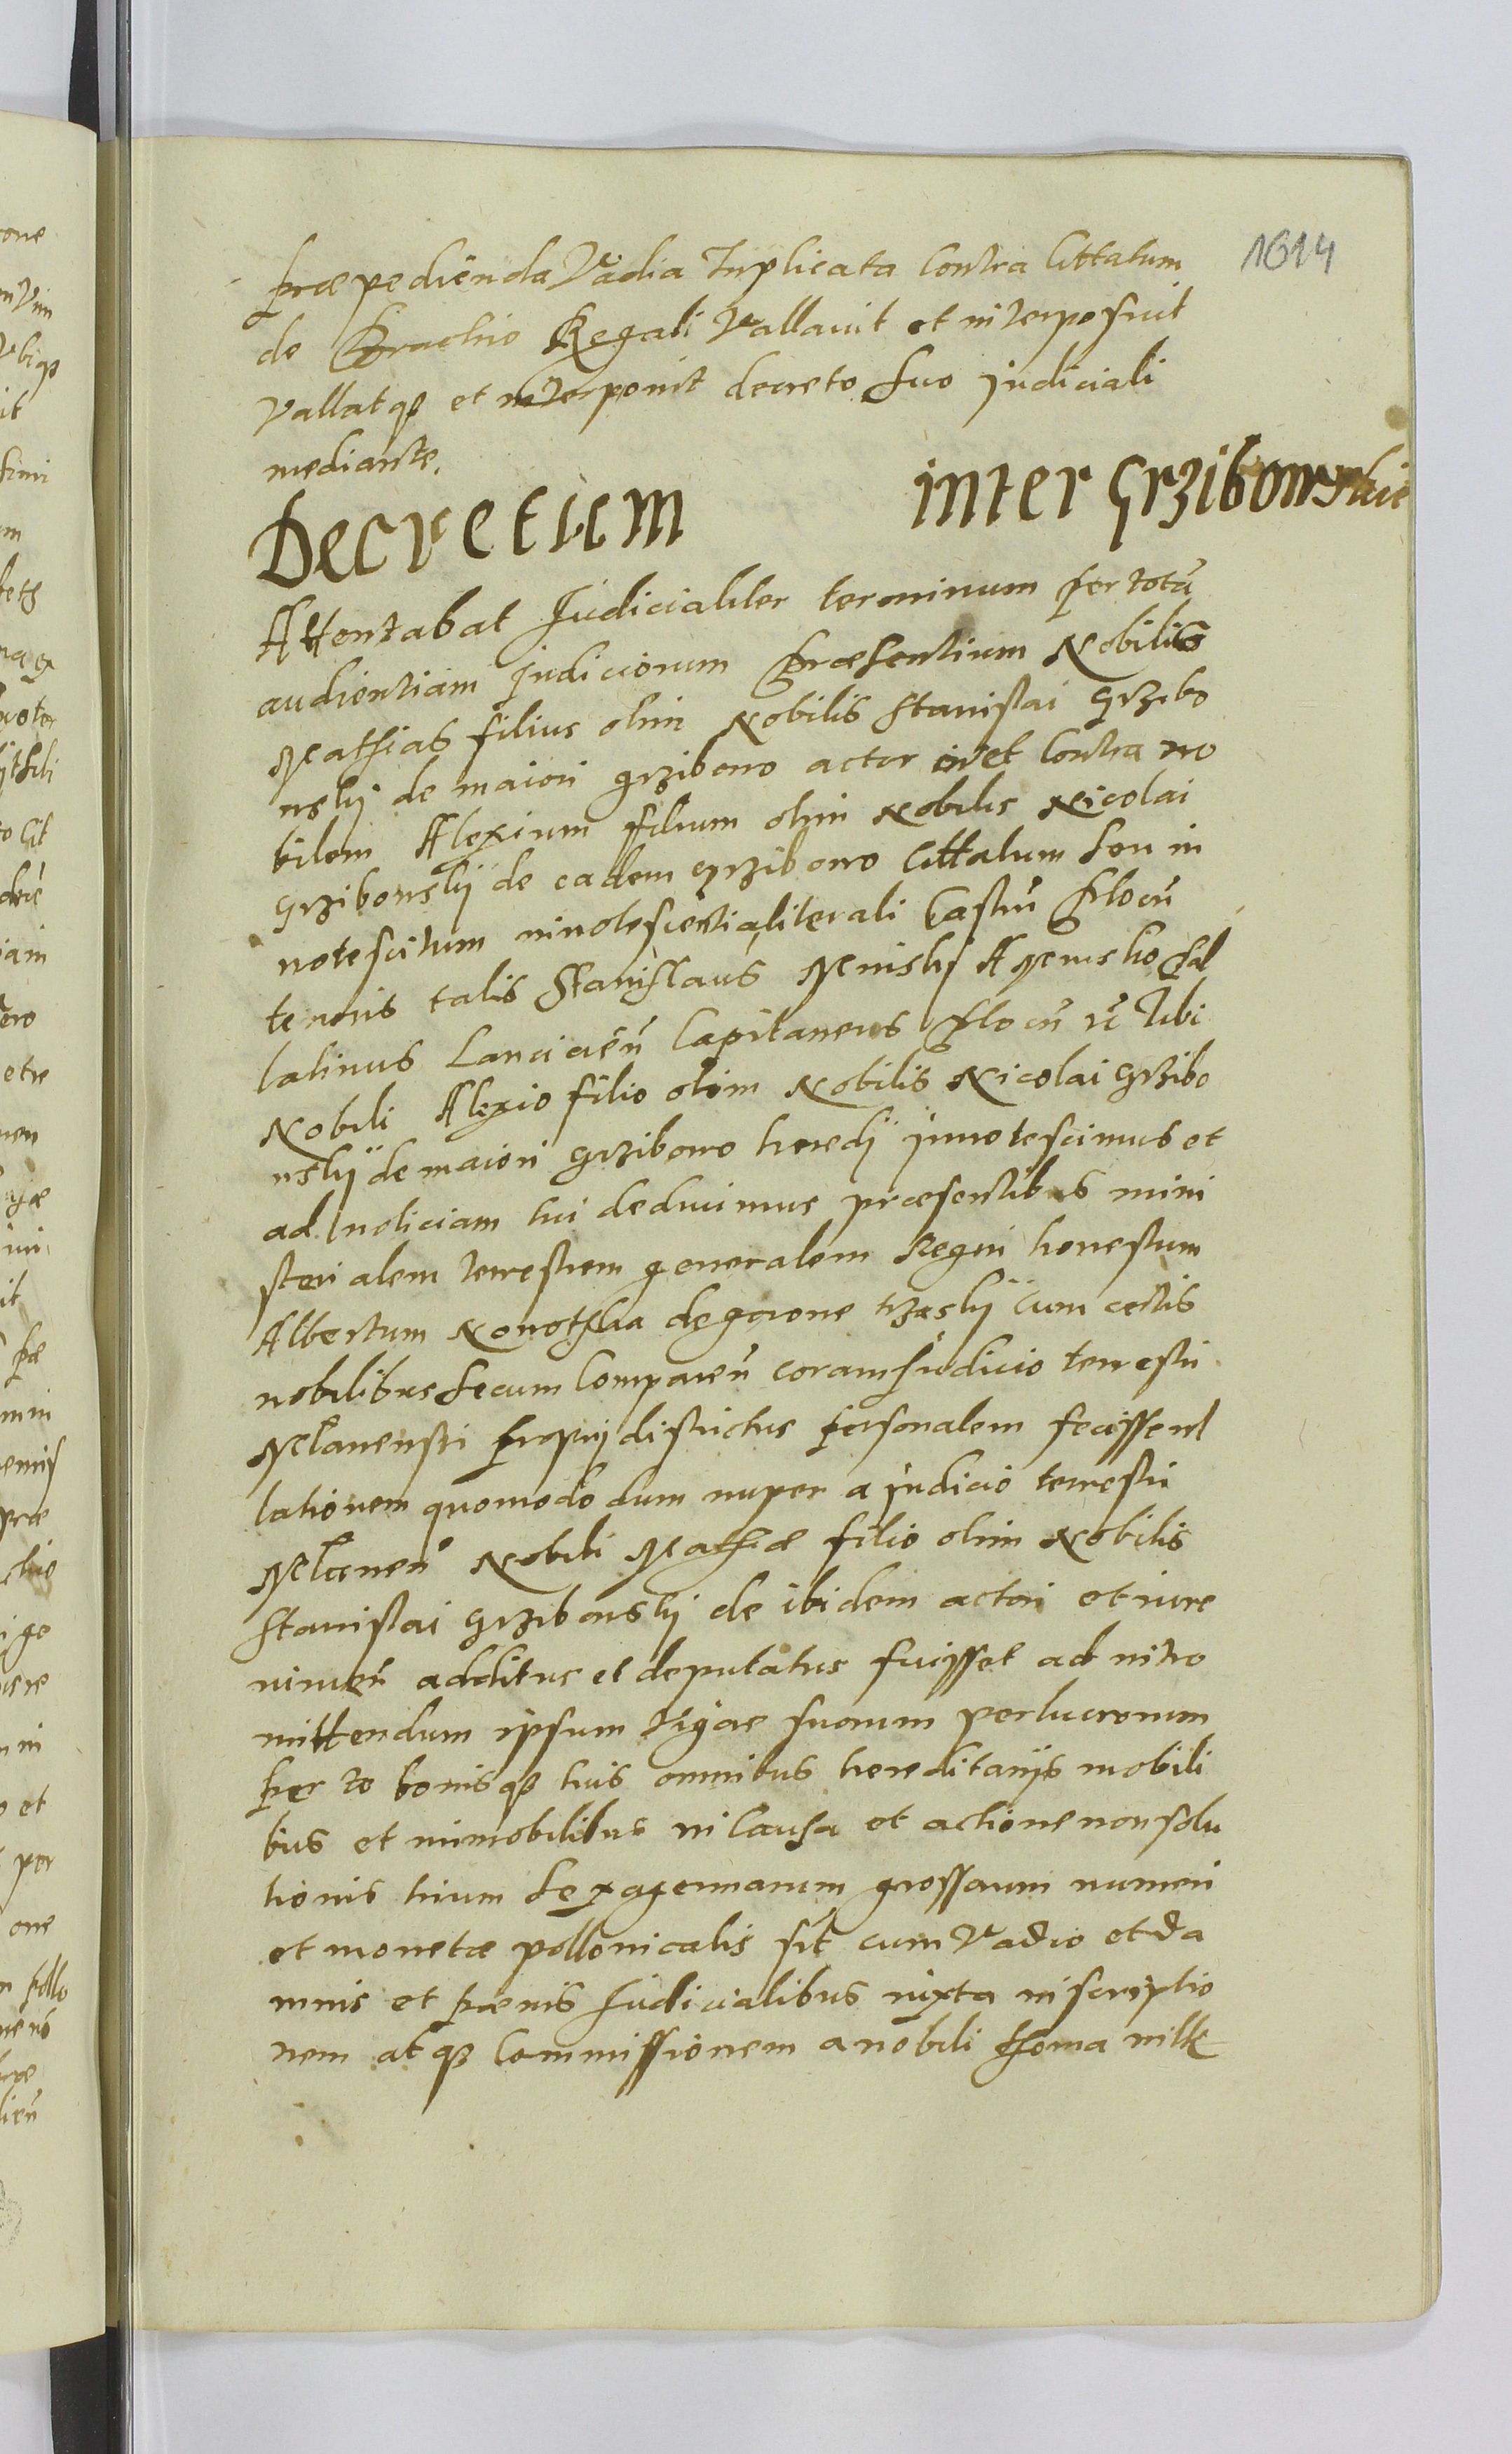 1614
præpedienda Vadia Triplicata Contra Cittatum
de Brachio Regali Vallavit et interposuit
Vallatq3 et interponit decreto suo judiciali
mediante.
Decretum inter Grzibowskie
Attentabat Judicialiter terminum per totū
audientiam Judiciorum Præsentium Nobilis
Mathias filius olim Nobilis Stanislai Grzibo
wskÿ de maiori grzibowo actor et Contra no
bilem Alexium filium olim Nobilis Nicolai
Grzibowskÿ de eadem grzibowo Cittatum seu in
notescitum innotescentia literali Castrn̄ Plocn̄
tenoris talis Stanislaus Meniskÿ
latinus Lancicien̄ Capitaneus Plocn̄ Tibi
Nobili Alexio filio olim Nobilis Nicolai Grzibo
wskÿ de maiori Grzibowo heredi innotescimus et
ad noticiam tui deducimus præsentibus mini
sterialem terrestrem generalem Regni honestum
Albertum Nowothka de cum certis
nobilibus secum Comparen̄ coram Judicio terrestri
Mlavensri proprÿ districtus personalem fecisse rel
lationem quomodo dum nuper a judicio terrestri
Mlaven̄ Nobili Mathiæ filio olim Nobilis
Stanislai Grzibowskÿ de ibidem actori et iure
vincen̄ additus et deputatus fuisset ad intro
mittendum ipsum Vigore suorum perlucrorum
per te bonisq3 tuis omnibus hereditarÿs mobili
bus et immobilibus in Causa et actione non solu
tionis trium sexagennarum grossorum numeri
et monetæ pollonicalis sit̄ cum Vadio et da
mnis et pænis Judicialibus iuxta inscriptio
nem atq3 Commissionem a nobili Thoma